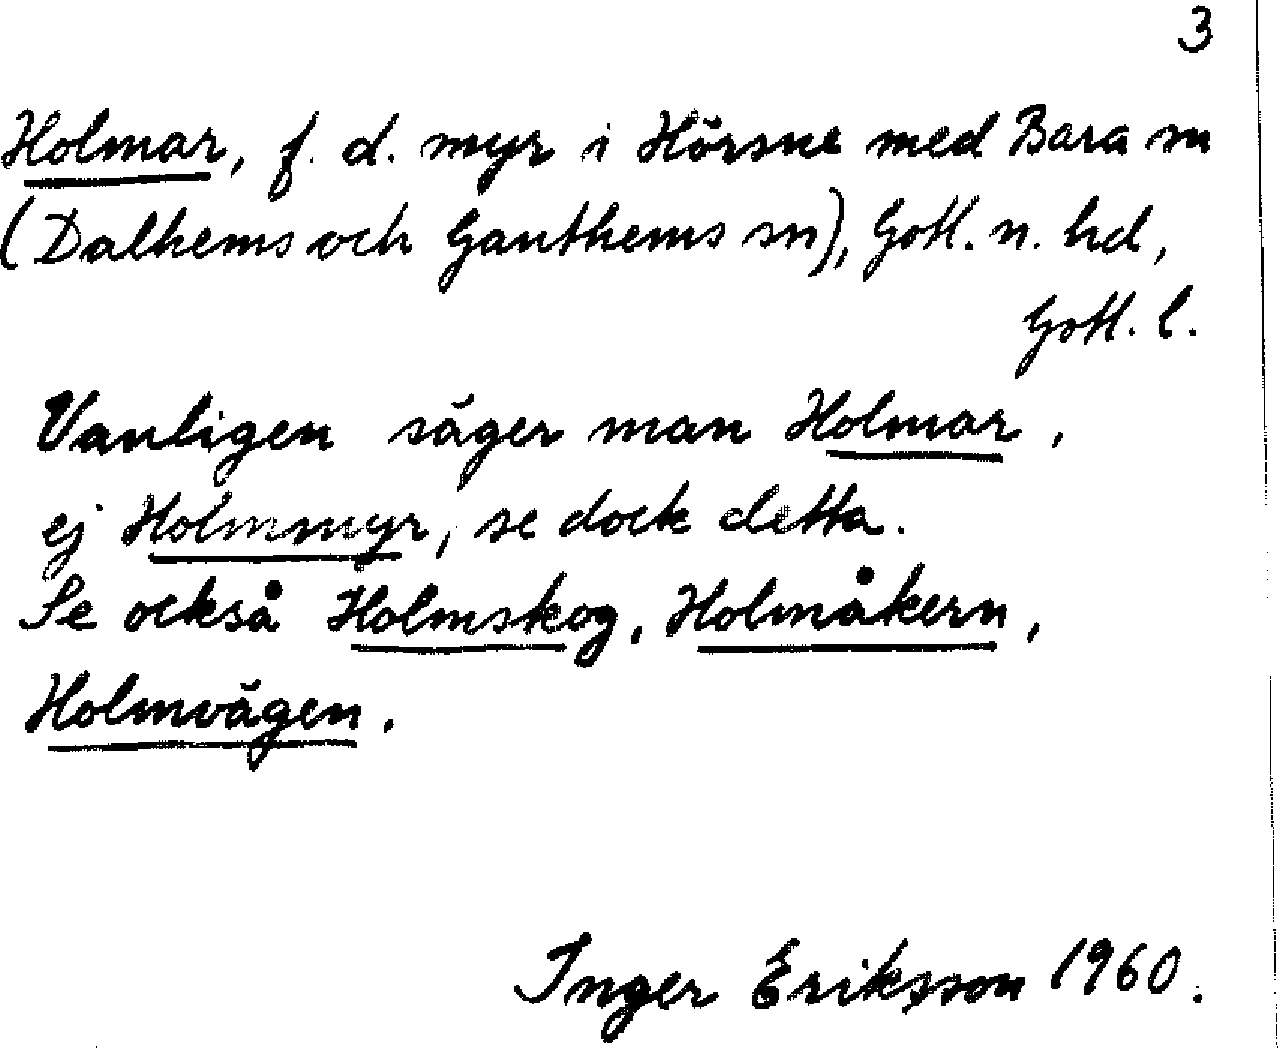 3
Holmar, f. d. myr i Hörsne med Bara sn
(Dalhems och Ganthems sn), Gotl. n. hd,
Gotl. l.
Vanligen säger man Holmar,
ej Holmmyr, se dock detta.
Se också Holmskog, Holmåkern,
Holmvägen.
Inger Eriksson 1960.